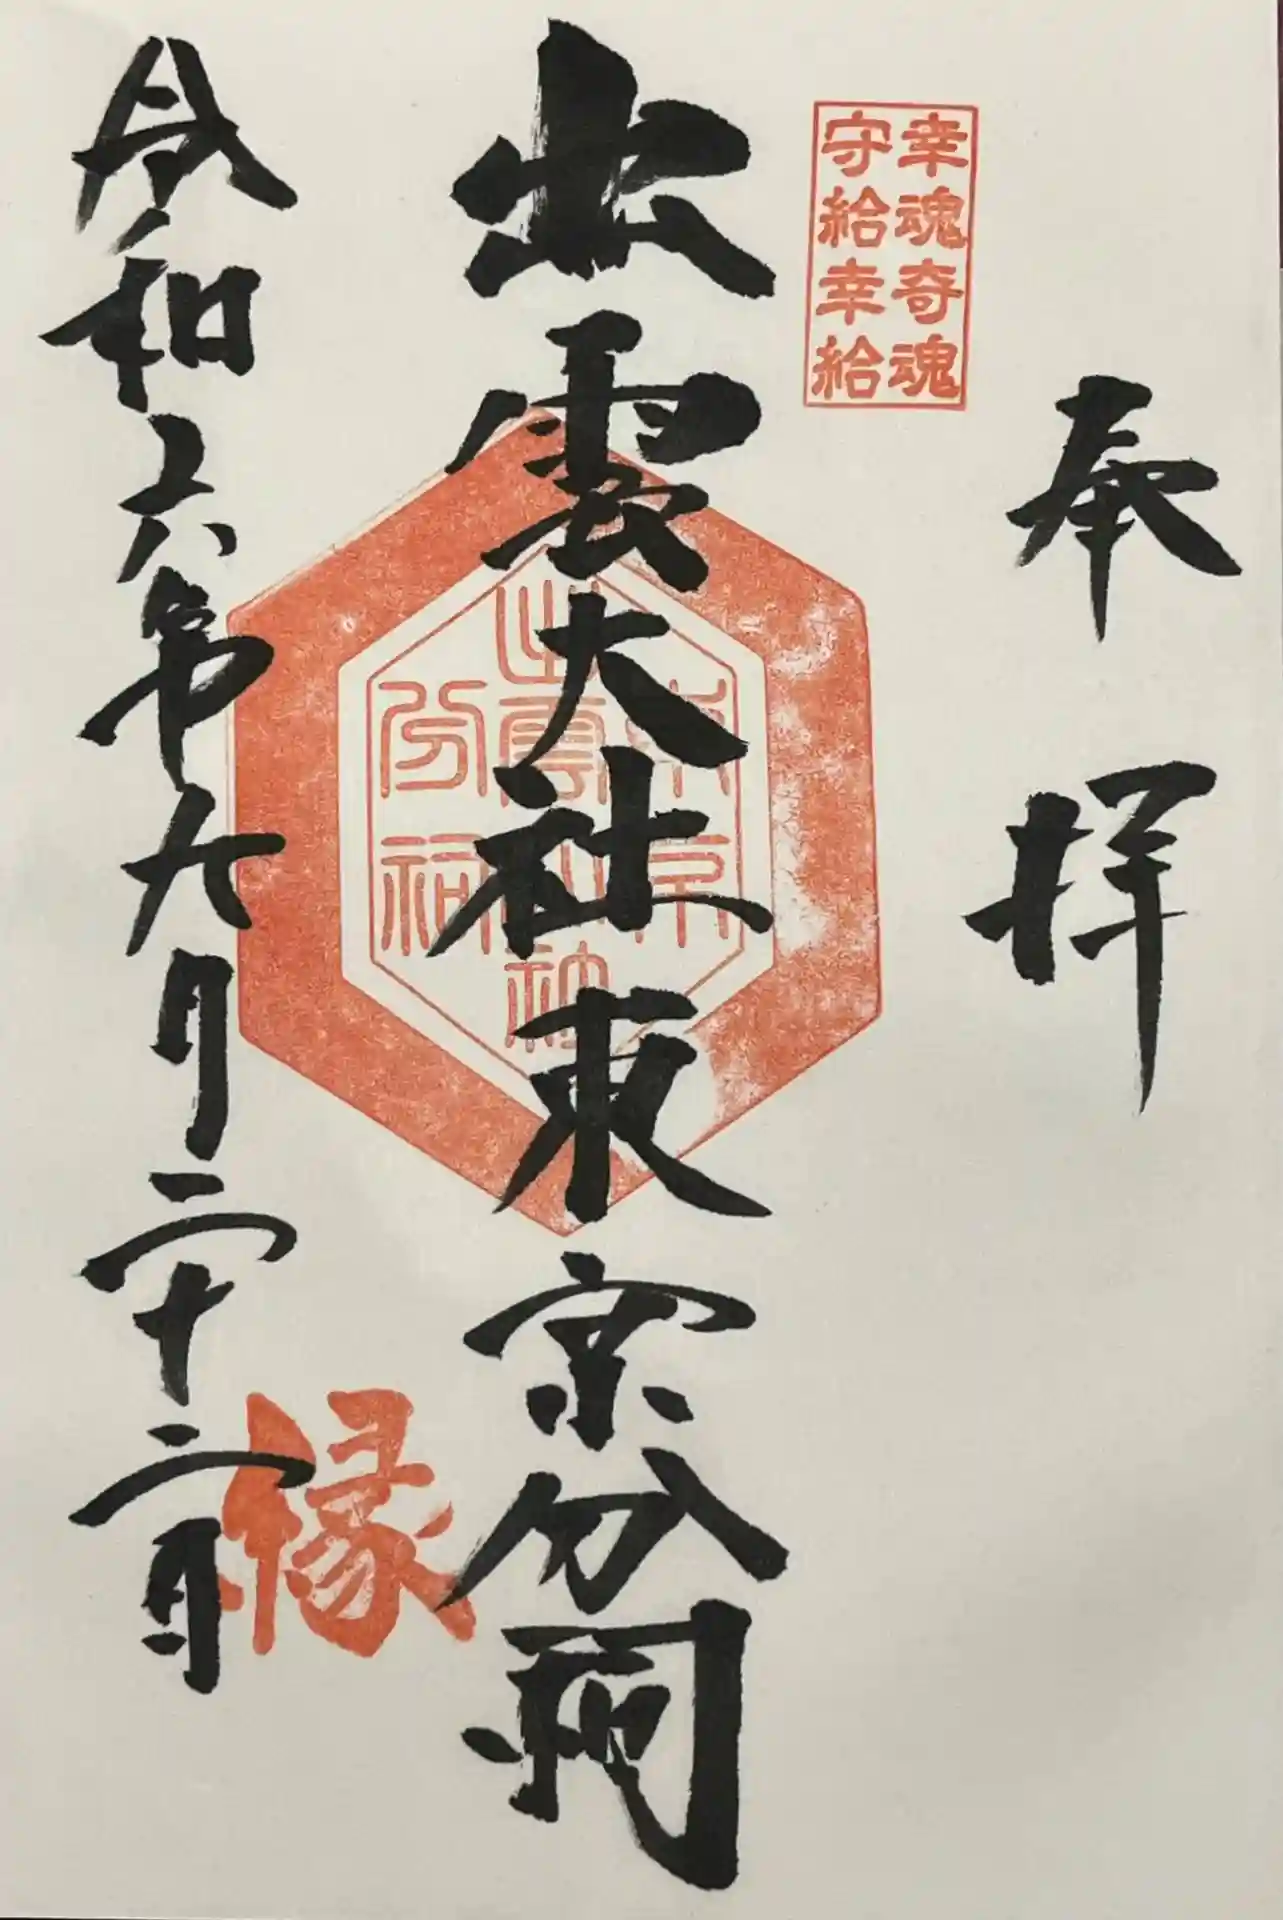 奉拝
幸魂奇魂
守給幸給
出雲大社東京分祠
東京
出雲大社
分祠
令和六年九月二十二日
縁